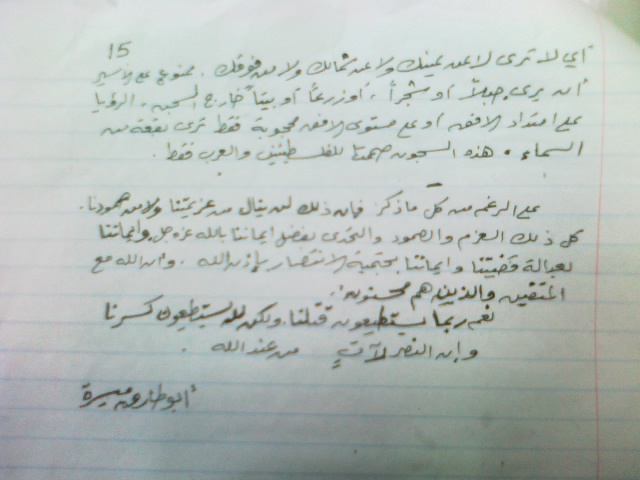 15
أي لا ترى لا عن يمينك ولا عن شمالك ولا من فوقك . ممنوع على الأسير
أن يرى جبلاً أو شجراً ، أو زرعاً أو بيتاً خارج السجن ، الرؤيا
على امتداد الافق أو على مستوى الافق محجوبة فقط ترى بقعة من
السماء . هذه السجون صممتا للفلسطينين والعرب فقط .
على الرغم من كل ما ذكر فإن ذلك لن ينال من عزيمتنا ولا من صمودنا .
كل ذلك العزم والصمود والتحدي بفضل ايماننا بالله عز وجل وايماننا
بعدالة قضيتنا وايماننا بحتمية الانتصار بإذن الله . وان الله مع
المتقين والذين هم محسنون .
نعم ربما يستطيعون قتلنا ولكن لا يستطيعون كسرنا
وإن النصر لآتٍ من عند الله .
أبو طارق ميرة